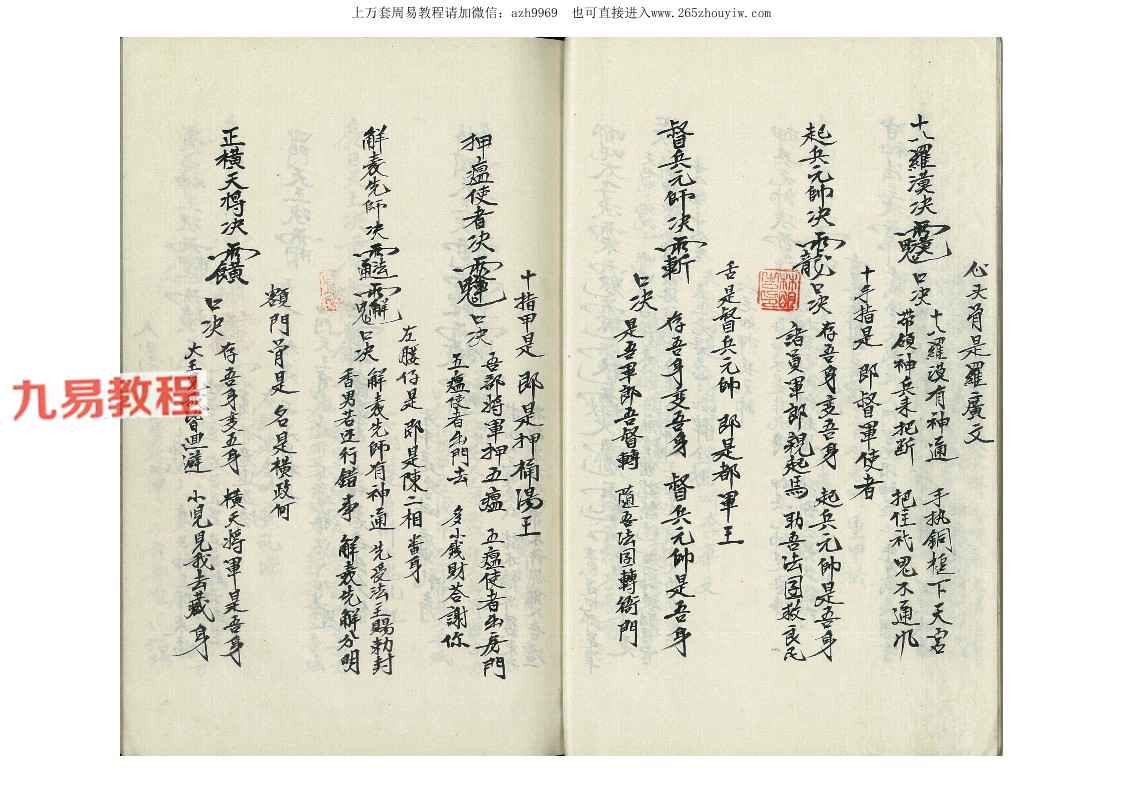 上万套周易教程请加微信：azh9969 也可直接进入www.265zhouyiw.com
心头骨是羅廣文
十八羅漢决
口决
十八羅漢有神通 手执銅棍下天宮
帶領神兵来把断 把住祅鬼不通
十手指是 即督軍使者
起兵元帥决
口决
存吾身变吾身 起兵元帅是吾身
諸員軍郎親起馬 助吾法囬救良民
舌是督兵元帥 即是都軍王
督兵元帥决
存吾身变吾身 督兵元帅是吾身
口决
是吾軍郎吾督轉 随吾法囬轉衙門
十指甲是 即是押桶湯王
押瘟使者决
口决
吾部將軍押五瘟 五瘟使者出房門
五瘟使者出門去 多少錢財答謝你
左腰仔是 即是陳二相
解表先師决
口决
解表先師有神通 先受法王賜勅封
香男若还行錯事 解表先解分明
額門骨是 名是横政何
正横天將决
口决
存吾身变五身 横天將軍是吾身
大王 皆迴避 小鬼見我去藏身
九易教程